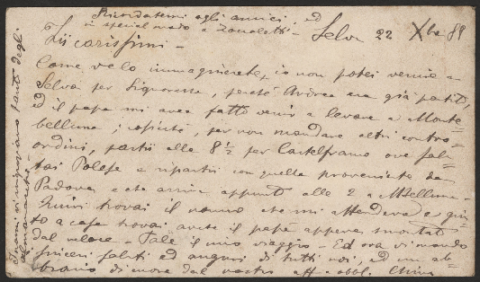 Ricordatemi agli amici, ed
in special modo a Zanoletti -
Selva 22 Xbe 89
Zii carissimi -
Come ve lo immaginerete, io non potei venire a
Selva per Signoressa, perché era già partito,
ed il papà mi aveva fatto venir a levare a Monte=
belluna; cosicché, per non mandare altri contro=
ordini, partii alle 8½ per Castelfranco ove
tai Polese e ripartii con quella proveniente da
Padova, e che arriva appunto alle 2 a M.Belluna -
Quivi trovai il nonno che mi attendeva e giun
to a casa trovai anche il papà appena smontato
dal - Tale il mio viaggio - Ed ora vi mando
sinceri saluti ed auguri di tutti noi, ed un ab=
braccio di cuore dal vostro aff. obbl.
Tutti vi ringraziano tanto degli